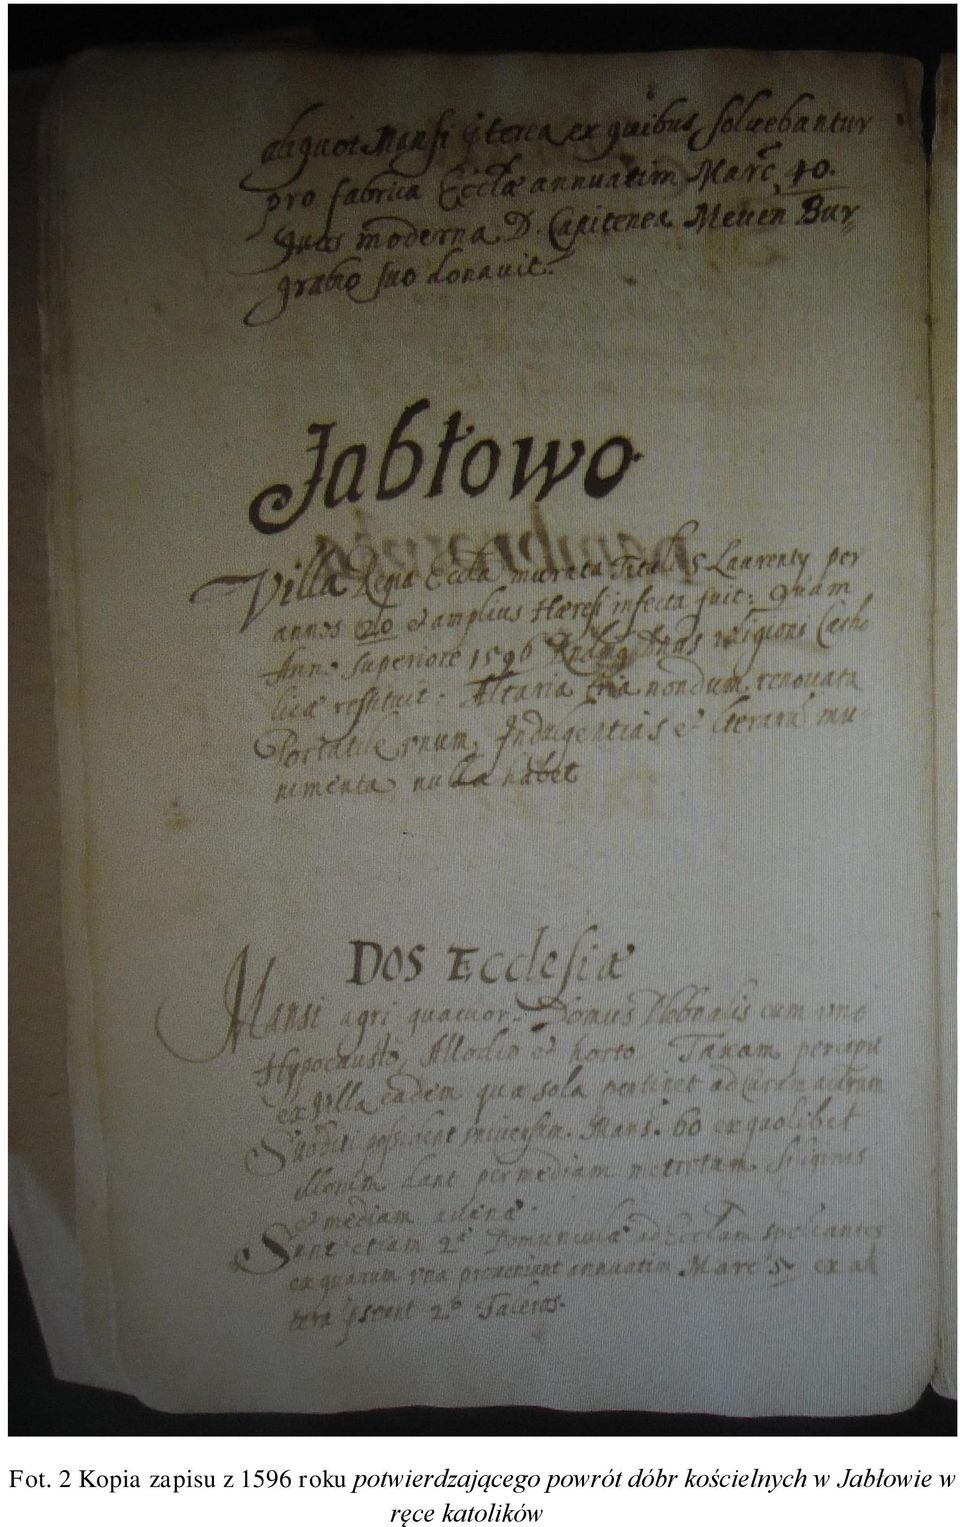 aliquot Mansi & terea ex quibus soluebantur
pro fabrica Eccłæ annuatim Marc. 40.
Quas moderna D. Capitenea Meuen Bur=
grabio suo donauit.
Jabłowo
Villa Regia Eccła murata Tituli S Laurenty per
annos 20 et amplius Hæresi infecta fuit: Quam
Ann. superiore 1596 religioni Catho
licæ restituit: Altaria tria nondum renouata
Portatile vnum, Indulgentias et literarū mu=
nimenta nulla habet
DOS Ecclesiæ
Mansi agri quatuor. Domus Plebnalis cum vno
Hypocausto, Allodio et horto Taxam percipit
ex villa eadem quæ sola pertinet ad Curam
Mans. 60 ex quolibet
illorum dant per mediam metretam siliginis
et mediam auenæ.
Sunt etiam 2æ Domunculæ ad Ecclam spectantes
ex quarum vna proueniunt annuatim Marc 5 ex al
tera 2º Taleros.
Fot. 2 Kopia zapisu z 1596 roku potwierdzającego powrót dóbr kościelnych w Jabłowie w
ręce katolików